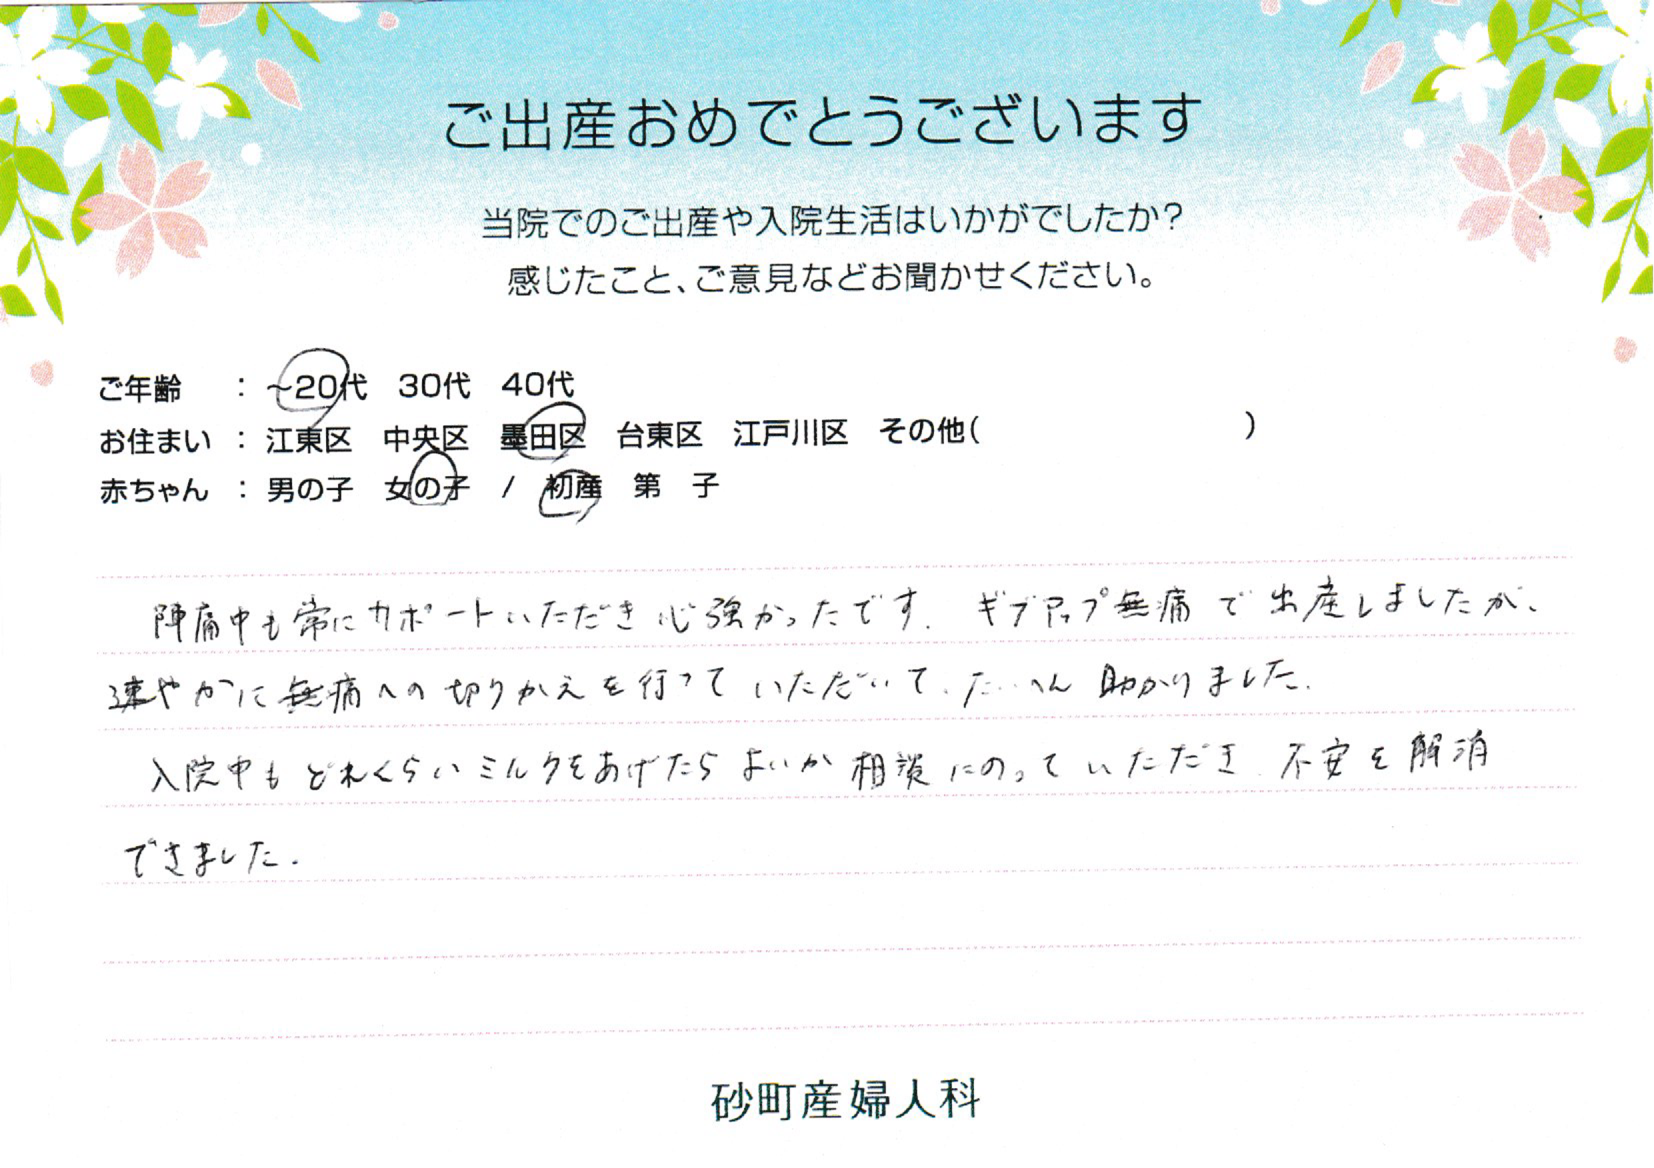 ご出産おめでとうございます
当院でのご出産や入院生活はいかがでしたか？
感じたこと、ご意見などお聞かせください。
ご年齢 ： ～20代 30代 40代
お住まい ： 江東区 中央区 墨田区 台東区 江戸川区 その他( )
赤ちゃん ： 男の子 女の子 / 初産 第 子
陣痛中も常にサポートいただき心強かったです. ギブアップ無痛で出産しましたが、
速やかに無痛への切りかえを行っていただいて、たいへん助かりました.
入院中もどれくらいミルクをあげたらよいか相談にのっていただき、不安を解消
できました.
砂町産婦人科